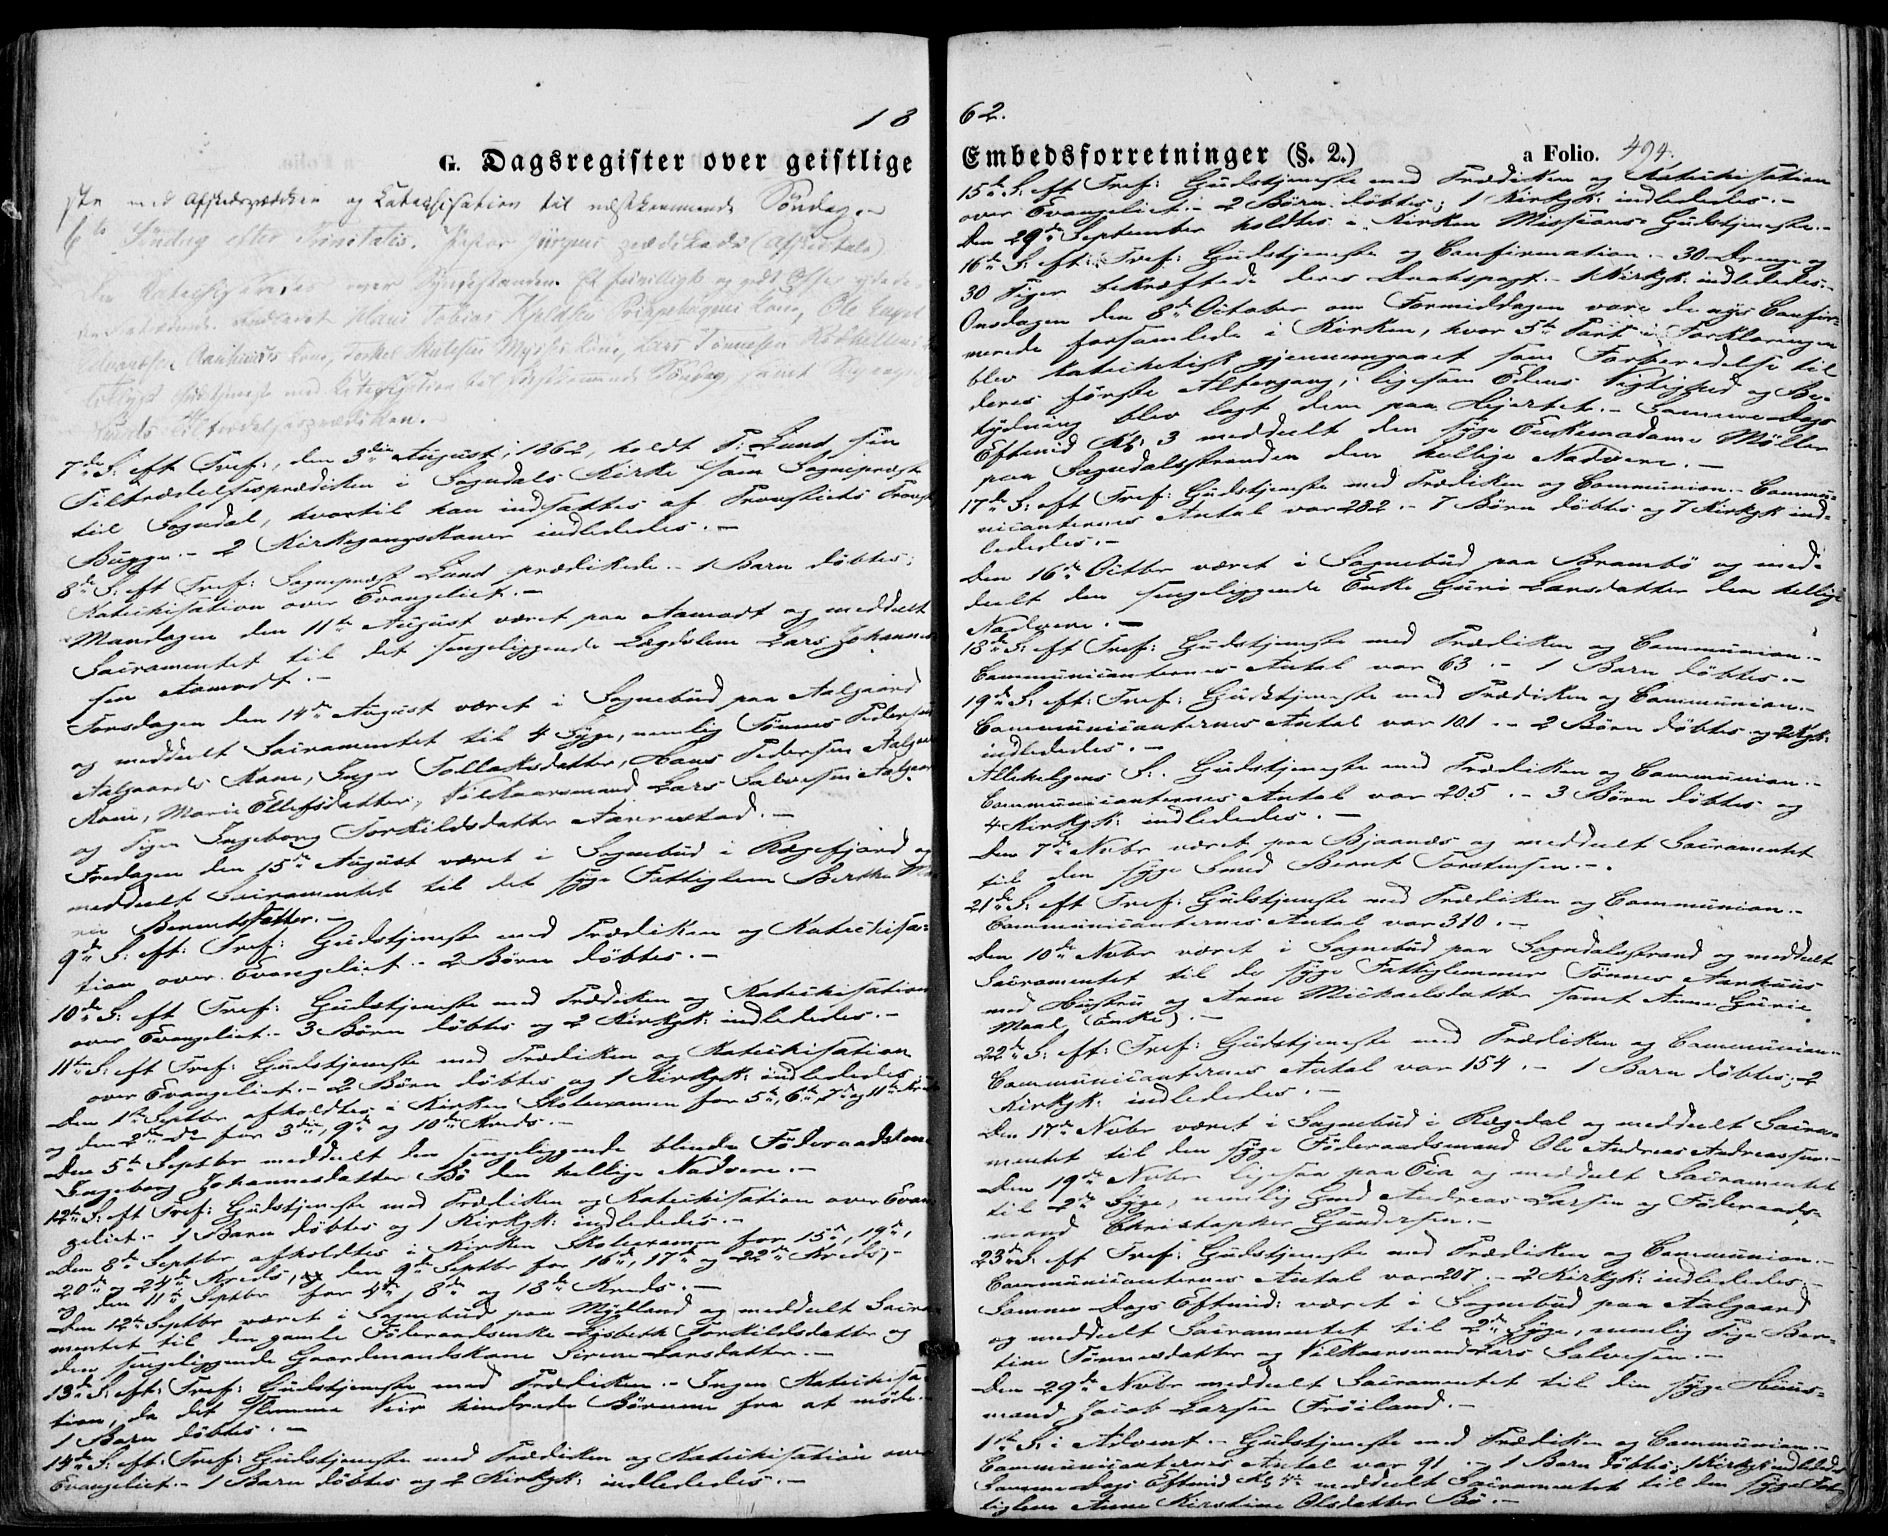 18
G. Dagsregister over geistlige
ste med Afskedsprædiken og Katechisation til næstkommende Söndag.
6te Söndag efter Trinitatis. prædikede (Afskedstale)
Den
Hans Tobias Ole
Lars Tönnesen
Gudstjeneste med til Söndag, samt
Tiltrædelsesprædiken.
7de S: eft Tref:, den 3die August, 1862, holdt P: Lund sin
Tiltrædelsesprædiken i Sogndals Kirke som Sognepræst
til Sogndal, hvortil han indsattes af Provstiets Provst
Bugge.- 2 Kirkegangskoner indlededes.-
8de S: eft Tref: Sognepræst Lund prædikede.- 1 Barn döbtes;
Katechisation over Evangeliet.-
Mandagen den 11te August været paa Aamodt og meddelt
Sacramentet til det sengeliggende Lægdslem Lars Johannes-
sen Aamodt.-
Torsdagen den 14de August været i Sognebud paa Aalgaard
og meddelt Sacramentet til 4 Syge, nemlig Tönnes Pedersen
Aalgaards Kone, Inger Tollaksdatter, Hans Pedersen Aalgaards
Kone, Marie Ellefsdatter, Vilkaarsmand Lars Salvesen Aalgaard
og Pigen Ingeborg Torkildsdatter Aarrestad.-
Fredagen den 15de August været i Sognebud i Rægefjord og
meddelt Sacramentet til det syge Fattiglem Berthe
Berentsdatter.-
9de S: eft: Tref: Gudstjeneste med Prædiken og Katechisa-
tion over Evangeliet.- 2 Börn döbtes.-
10de S: eft Tref: Gudstjeneste med Prædiken og Katechisation
over Evangeliet.- 3 Börn döbtes og 2 Kirkgk: indlededes.-
11te S: eft Tref: Gudstjeneste med Prædiken og Katechisation
over Evangeliet.- 2 Börn döbtes og 1 Kirkgk: indlededes.
Den 1ste Septbr afholdtes i Kirken Skoleexamen for 5te, 6te, 7de og 11te Kreds
og den 2den Do for 3die, 9de og 10de Kreds.-
Den 5te Septbr meddelt den sengeliggende blinde Föderaadskone
Ingeborg Johannesdatter Bö den hellige Nadvere.-
12te S: eft Tref: Gudstjeneste med Prædiken og Katechisation over Evan-
geliet.- 1 Barn döbtes og 1 Kirkgk: indlededes.-
Den 8de Septbr afholdtes i Kirken Skoleexamen for 15de, 19de,
20de og 24de Kreds, den 9de Septbr for 16de, 17de og 22de Kreds,
og den 11te Septbr for 4de, 8de og 18de Kreds.-
Den 12te Septbr været i Sognebud paa Mydland og meddelt Sacra-
mentet til den gamle Föderaadsenke Lisbeth Torkildsdatter og
den sengeliggende Gaardmandskone Sirene Larsdatter.-
13de S: eft: Tref: Gudstjeneste med Prædiken.- Ingen Katechisa-
tion, da det slemme Veir hindrede Börnene fra at möde.-
1 Barn döbtes.-
14de S: eft: Tref: Gudstjeneste med Prædiken og Katechisation over
Evangeliet.- 1 Barn döbtes og 2 Kirkgk: indlededes.-
62.
Embedsforretninger (§. 2.)
a Folio. 494.
15de S: eft Tref: Gudstjeneste med Prædiken og Katechisation
over Evangeliet.- 2 Börn döbtes; 1 Kirkgk: indlededes.-
Den 29de September holdtes i Kirken Missions-Gudstjeneste.-
16de S: eft: Tref: Gudstjeneste og Confirmation.- 30 Drenge og
30 Piger bekræftede deres Daabspagt.- 1 Kirkgk: indlededes.-
Onsdagen den 8de October om Formiddagen vare de nys Confir-
merede forsamlede i Kirken, hvor 5te Part i Forklaringen
blev katechetisk gjennemgaaet som Forberedelse til
deres förste Altergang, ligesom Edens Vigtighed og Be-
tydning blev lagt dem paa Hjertet.- Samme Dags
Eftmid Kl: 3 meddelt den syge Enkemadame Möller
paa Sogndalsstranden den hellige Nadvere.-
17de S: eft Tref: Gudstjeneste med Prædiken og Communion.- Commu-
nicanternes Antal var 282.- 7 Börn döbtes og 7 Kirkgk ind-
lededes.-
Den 16de Octbr været i Sognebud paa Brambö og med-
delt den sengeliggende Enke Guri Larsdatter den hellige
Nadvere.-
18de S: eft Tref: Gudstjeneste med Prædiken og Communion.-
Communicanternes Antal var 63.- 1 Barn döbtes.-
19de S: eft: Tref: Gudstjeneste med Prædiken og Communion.-
Communicanternes Antal var 101.- 2 Börn döbtes og 2 Kgk:
indlededes.-
Allehelgens S:. Gudstjeneste med Prædiken og Communion.-
Communicanternes Antal var 205.- 3 Börn döbtes og
4 Kirkgk: indlededes.-
Den 7de Novbr været paa Bjaanæs og meddelt Sacramentet
til den syge Smed Bernt Torstensen.-
21de S: eft Tref: Gudstjeneste med Prædiken og Communion.-
Communicanternes Antal var 310.-
Den 10de Novbr været i Sognebud paa Sogndalsstrand og meddelt
Sacramentet til de syge Fattiglemmer Tönnes Aarhuus
med Hustru og Anne Michaelsdatter samt Anne Gurie
Maal, (Enke).-
22de S: eft: Tref: Gudstjeneste med Prædiken og Communion.-
Communicanternes Antal var 154.- 1 Barn döbtes; 2
Kirkgk: indlededes.-
Den 17de Novbr været i Sognebud i Rægedal og meddelt Sacra-
mentet til den syge Föderaadsmand Ole Andreas Andreassen.-
Den 19de Novbr ligesaa paa Eia og meddelt Sacramentet
til 2de Syge, nemlig Gmd Andreas Larsen og Föderaads-
mand Christopher Gundersen.-
23de S: eft Tref: Gudstjeneste med Prædiken og Communion.-
Communicanternes Antal var 207.- 2 Kirkgk: indlededes.-
Samme Dags Eftmid: været i Sognebud paa Aalgaard
og meddelt Sacramentet til 2de Syge, nemlig Pige Ber-
tine Tönnesdatter og Vilkaarsmand Lars Salvesen.-
Den 29de Novbr meddelt Sacramentet til den syge Huus-
mand Jacob Larsen Fröiland.-
1ste S: i Advent.- Gudstjeneste med Prædiken og Communion.-
Communicanternes Antal var 91.- 1 Barn döbtes; 1 Kirkgk indlededes
Samme Dags Eftmid Kl: 4 meddelt Sacramentet til den syge Fat-
tiglem Anne Kirstine Olsdatter Bö.-